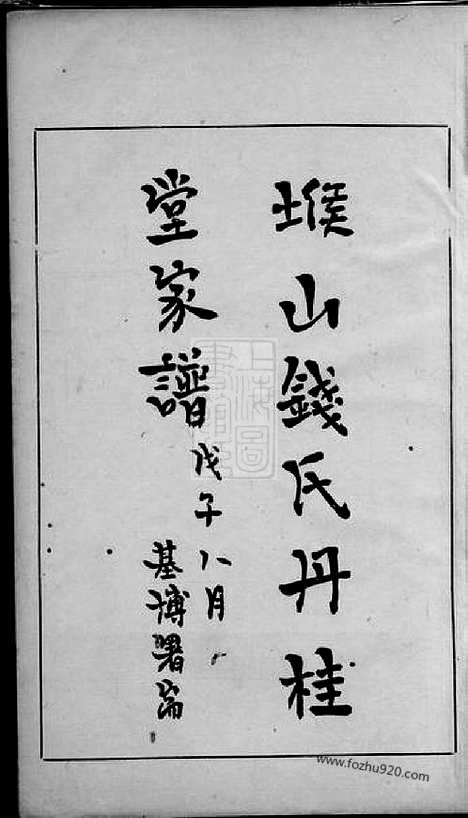 堠山錢氏丹桂
堂家譜
戊子八月
基博署耑
上海圖書館藏
www.fozhu920.com